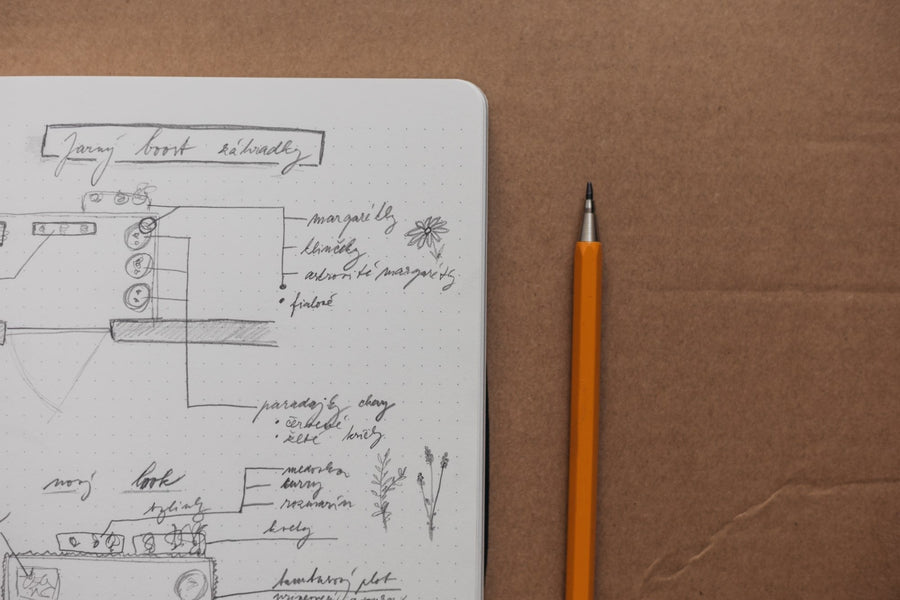 Jarný boost záhradky
margarétky
klinčeky
astrovité margarétky
• fialové
paradajky cherry
• červené
• žlté kríčky
nový look
bylinky
medovka
rozmarín
kvety
bambusový plot